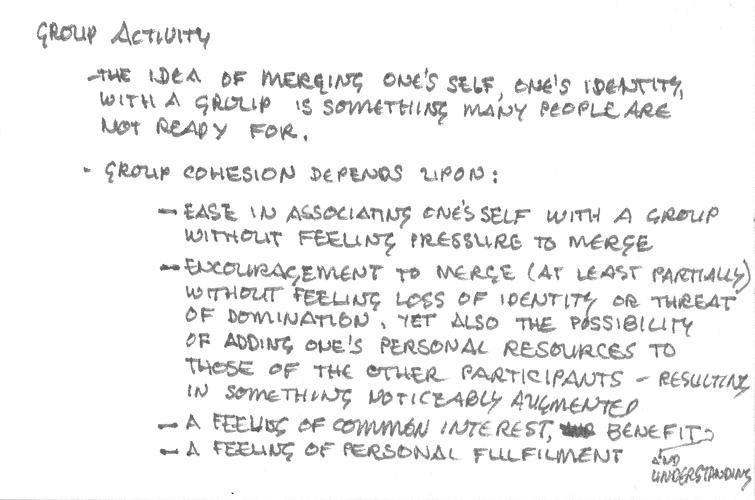 GROUP ACTIVITY
- THE IDEA OF MERGING ONE'S SELF, ONE'S IDENTITY,
WITH A GROUP IS SOMETHING MANY PEOPLE ARE
NOT READY FOR.
- GROUP COHESION DEPENDS UPON:
- EASE IN ASSOCIATING ONE'S SELF WITH A GROUP
WITHOUT FEELING PRESSURE TO MERGE
- ENCOURAGEMENT TO MERGE (AT LEAST PARTIALLY)
WITHOUT FEELING LOSS OF IDENTITY OR THREAT
OF DOMINATION. YET ALSO THE POSSIBILITY
OF ADDING ONE'S PERSONAL RESOURCES TO
THOSE OF THE OTHER PARTICIPANTS - RESULTING
IN SOMETHING NOTICEABLY AUGMENTED
- A FEELING OF COMMON INTEREST, BENEFIT
- A FEELING OF PERSONAL FULFILMENT
AND
UNDERSTANDING